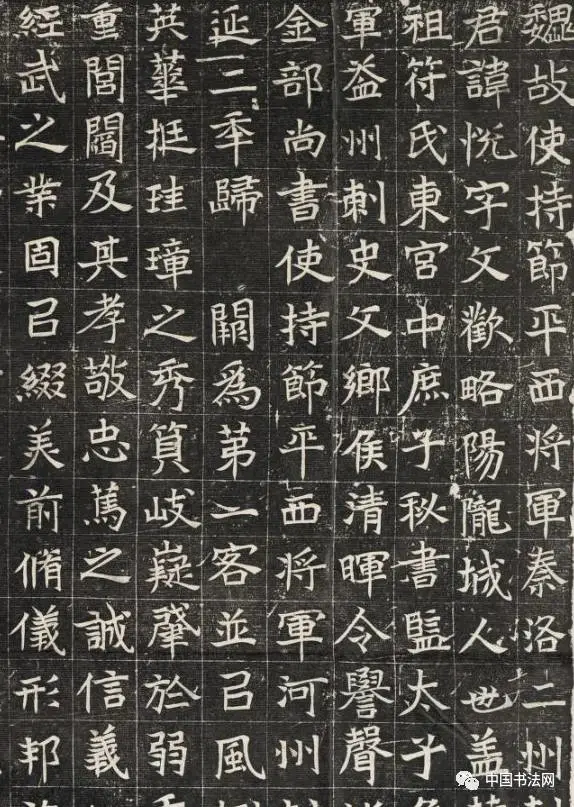 魏故使持節平西将軍秦洛二州
君諱悅字文歡略陽隴城人也盖
祖符氏東宮中庶子秘書監太子
軍益州刺史父鄉侯清暉令譽聲
金部尚書使持節平西将軍河州
延二年歸 闕為第一客並㠯風
英華挺珪璋之秀質岐嶷肇於弱
重閭閻及其孝敬忠篤之誠信義
經武之業固㠯綴美前脩儀形邦
中国书法网